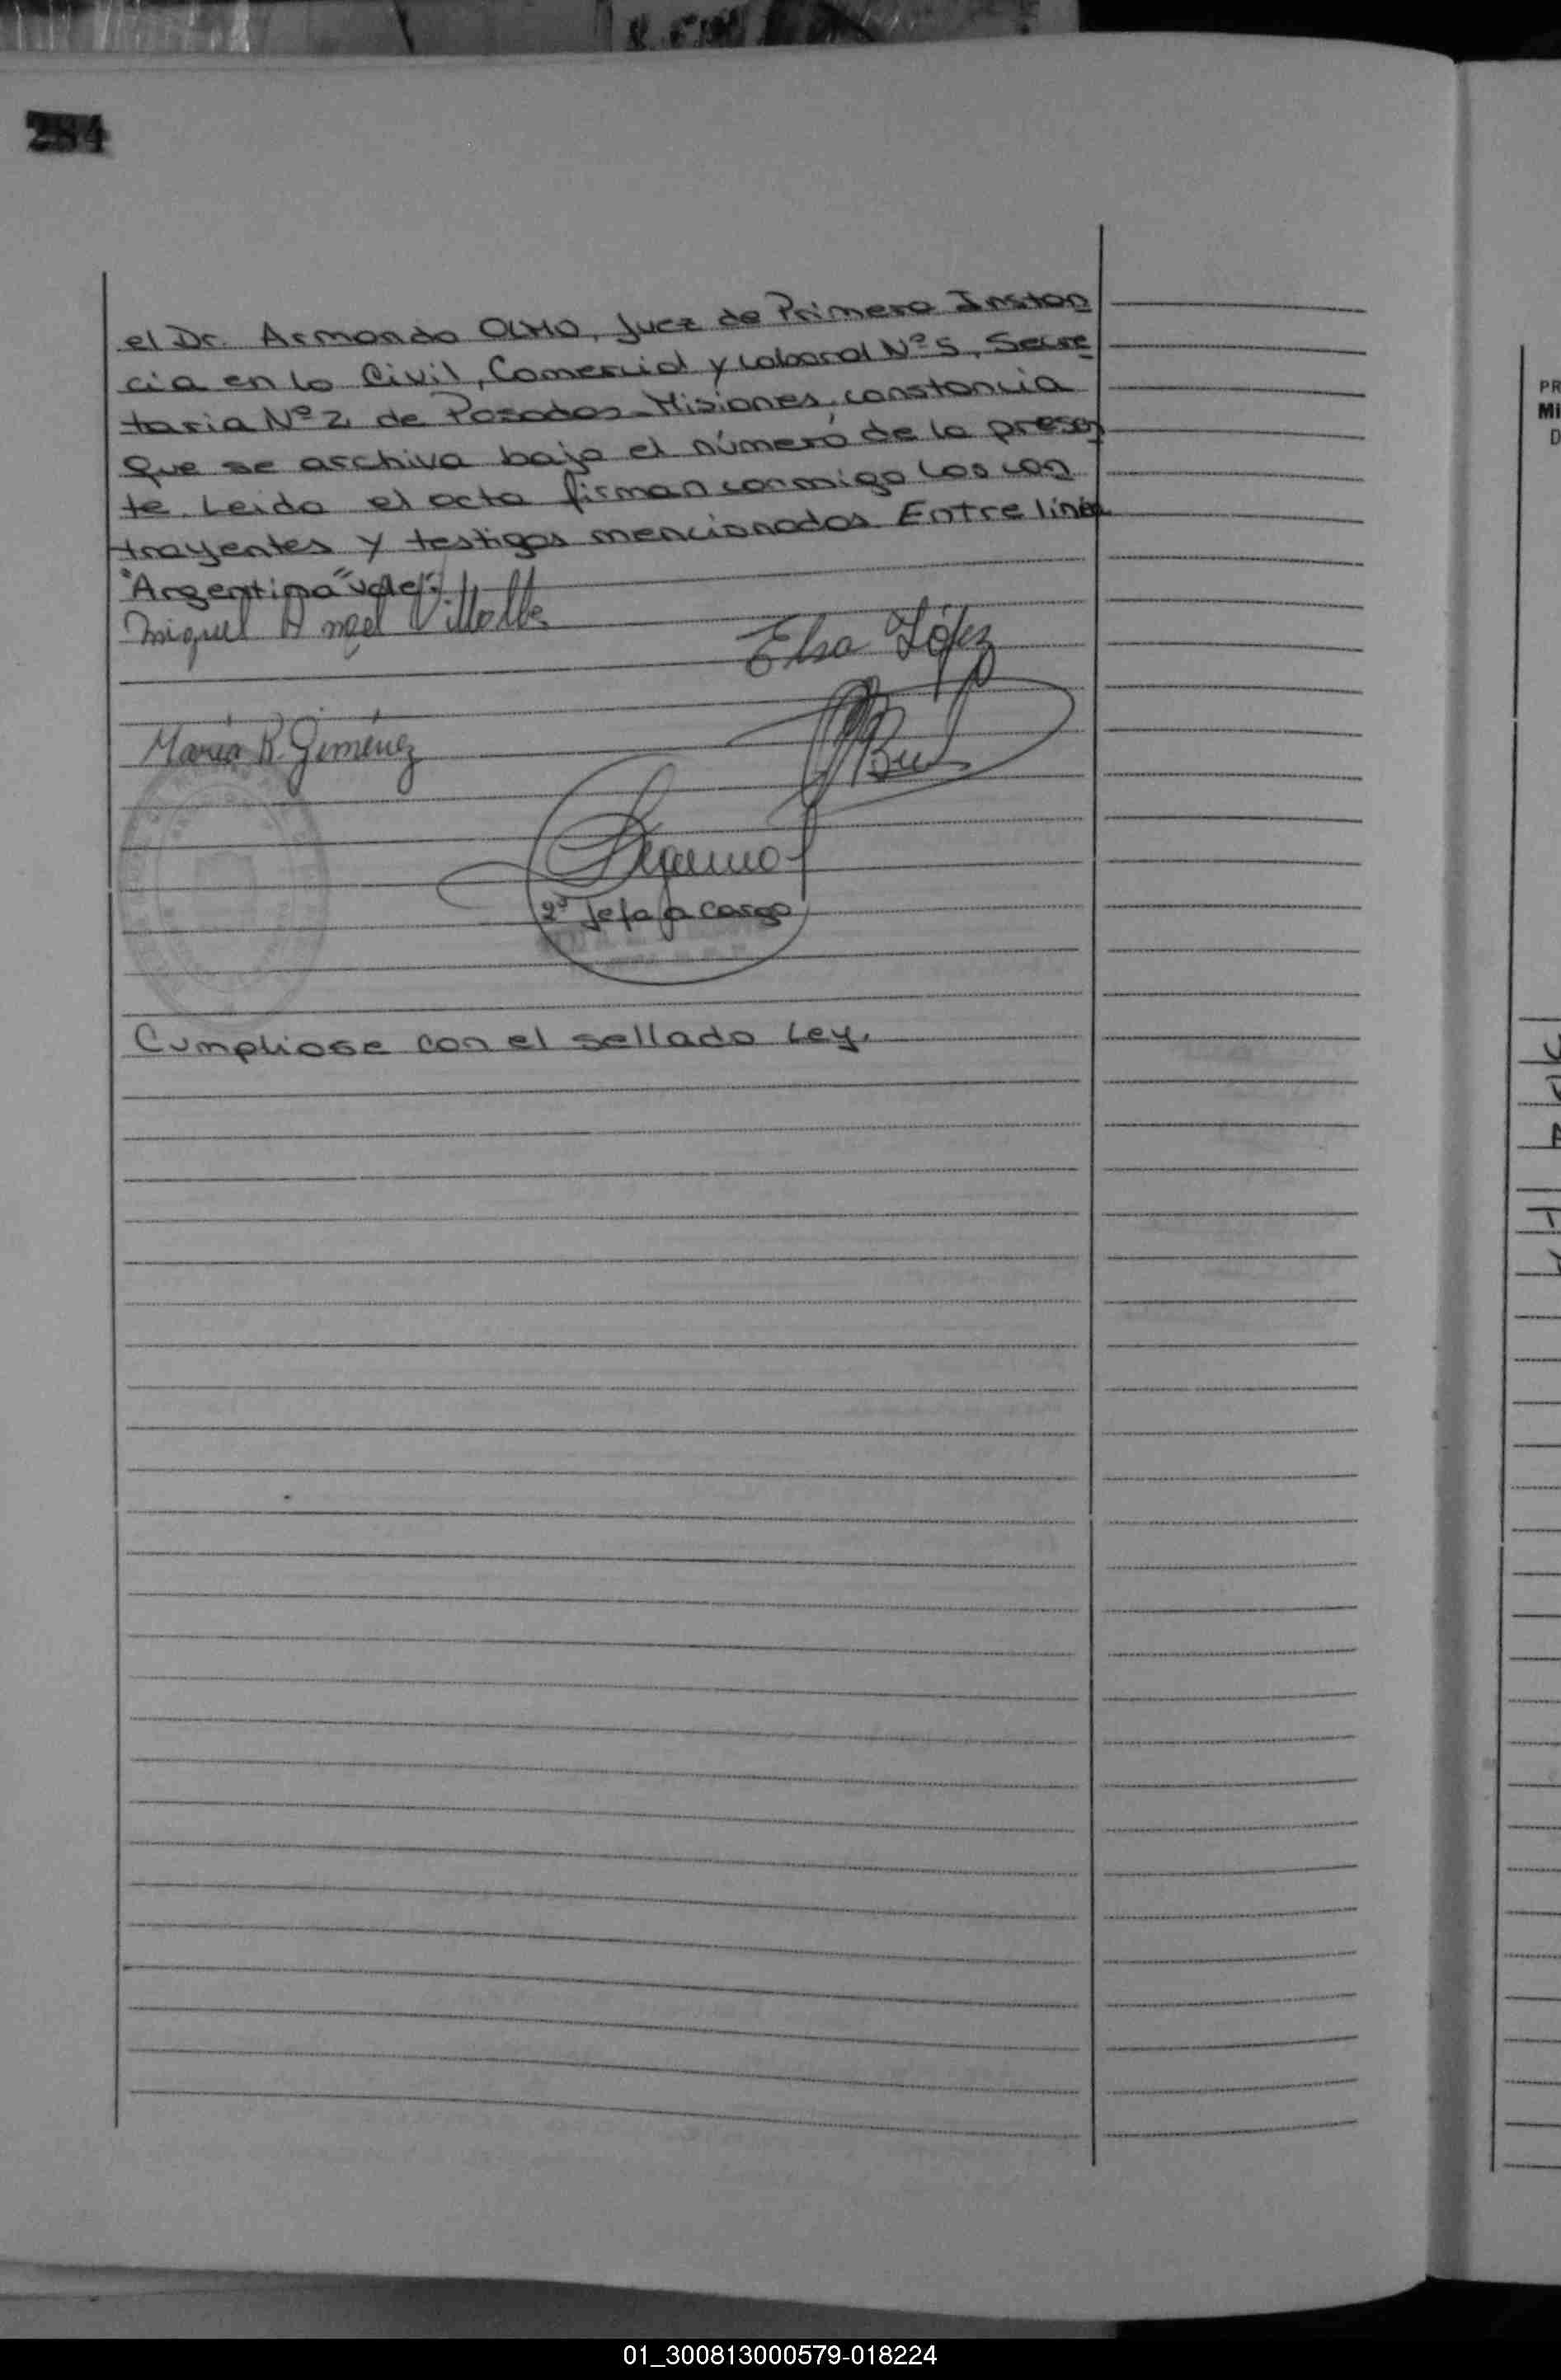 284
el Dr. Armando OLMO, Juez de Primera Instan
cia en lo Civil, Comercial y Laboral Nº 5, Secre
taria Nº 2, de Posadas-Misiones, constancia
que se archiva bajo el número de la presen
te. Leida el acta firman conmigo los con
trayentes y testigos mencionados. Entre linea
"Argentina" vale.
Miguel Angel Villalba
Elsa López
Maria R. Giménez
2º Jefa a cargo
Cumpliose con el sellado Ley.
PR
Mi
D
01_300813000579-018224